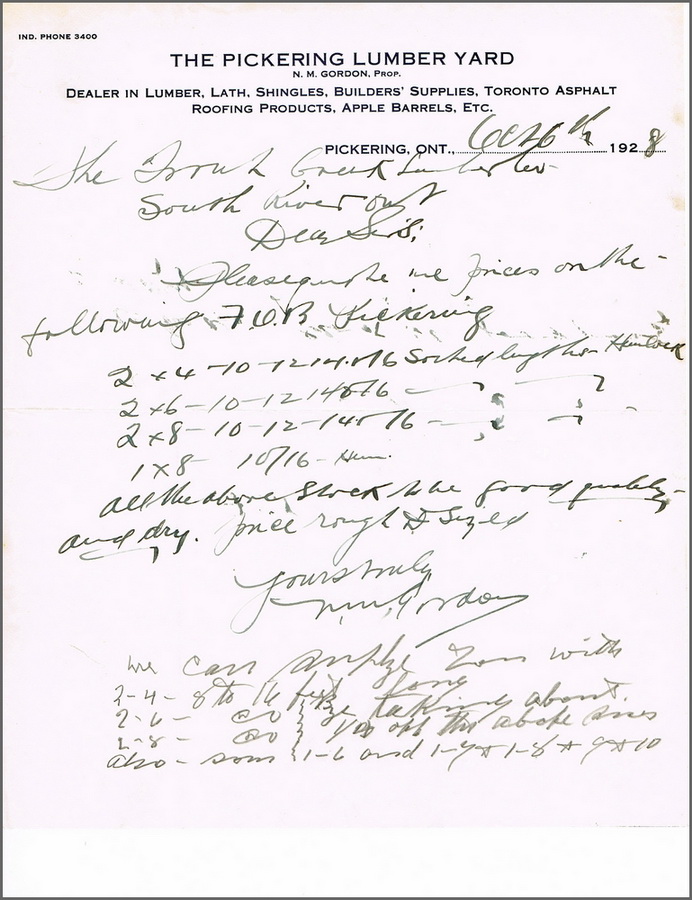 IND. PHONE 3400
THE PICKERING LUMBER YARD
N. M. GORDON, PROP.
DEALER IN LUMBER, LATH, SHINGLES, BUILDERS' SUPPLIES, TORONTO ASPHALT
ROOFING PRODUCTS, APPLE BARRELS, ETC.
PICKERING, ONT., Oct 6th 1928
The Trout Creek Lumber Co
South River Ont
Dear Sirs;
Please quote me prices on the
following F.O.B Pickering
2 x 4 - 10 - 12 14 or 16 Sorted lengths Hemlock
2 x 6 - 10 - 12 14 or 16
2 x 8 - 10 - 12 - 14 or 16
1 x 8 - 10/16 - Hem.
all the above Stock to be good quality
and dry. price rough & Sized
yours truly
N.M. Gordon
we can you with
2-4 - 8 to 16 feet long
2-6 - do taking about
2-8 - do of the above sizes
also - som 1-6 and 1-7 & 1-8 & 9 & 10